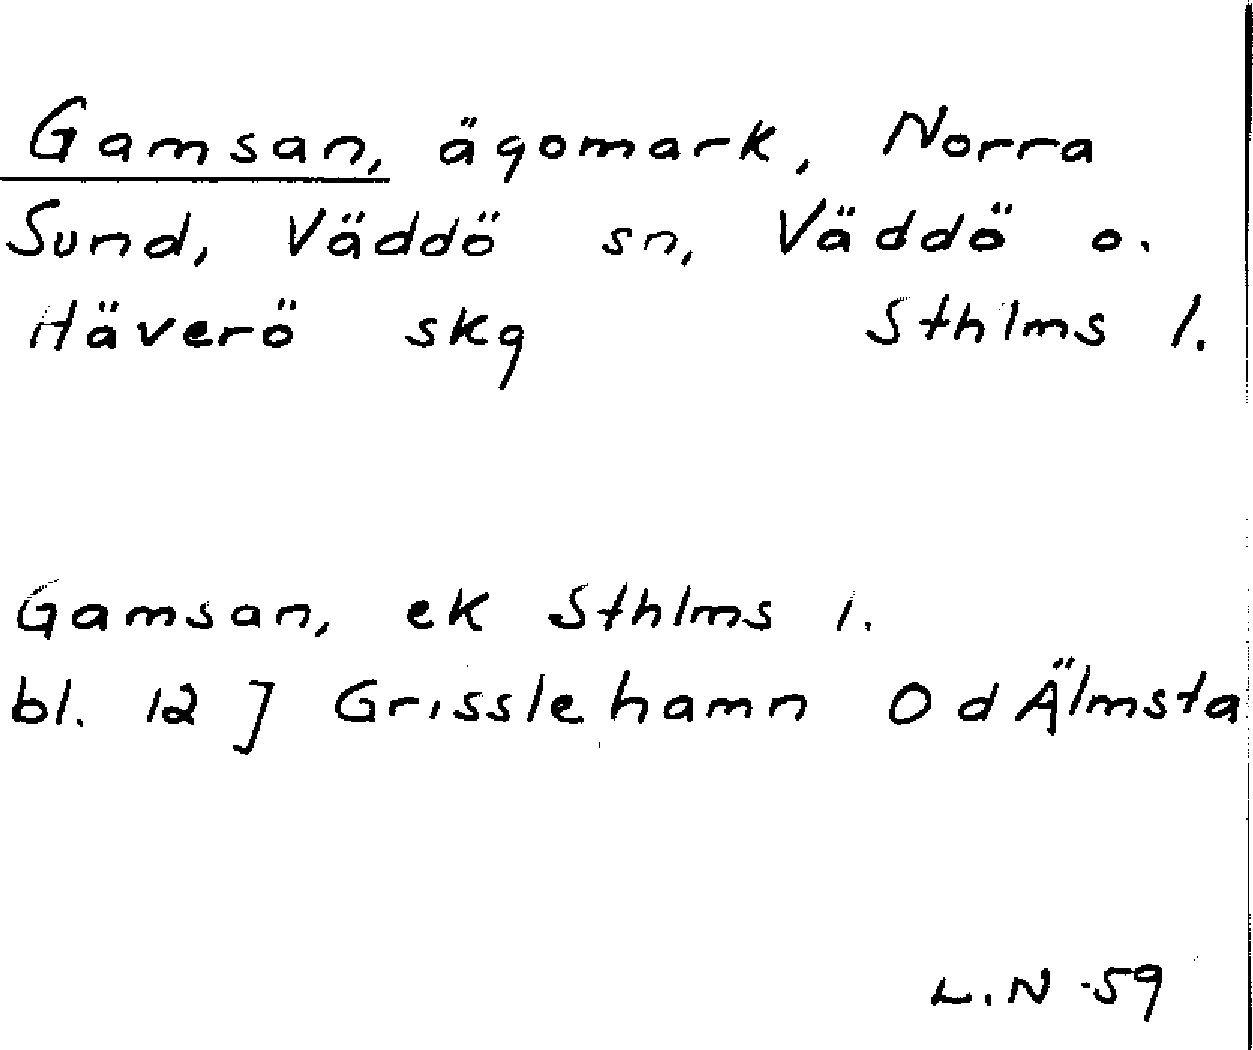 Gamsan, ägomark, Norra
Sund, Väddö sn, Väddö o.
Häverö skg Sthlms l.
Gamsan, ek Sthlms l.
bl. 12 J Grisslehamn Od Älmsta
L.N -59